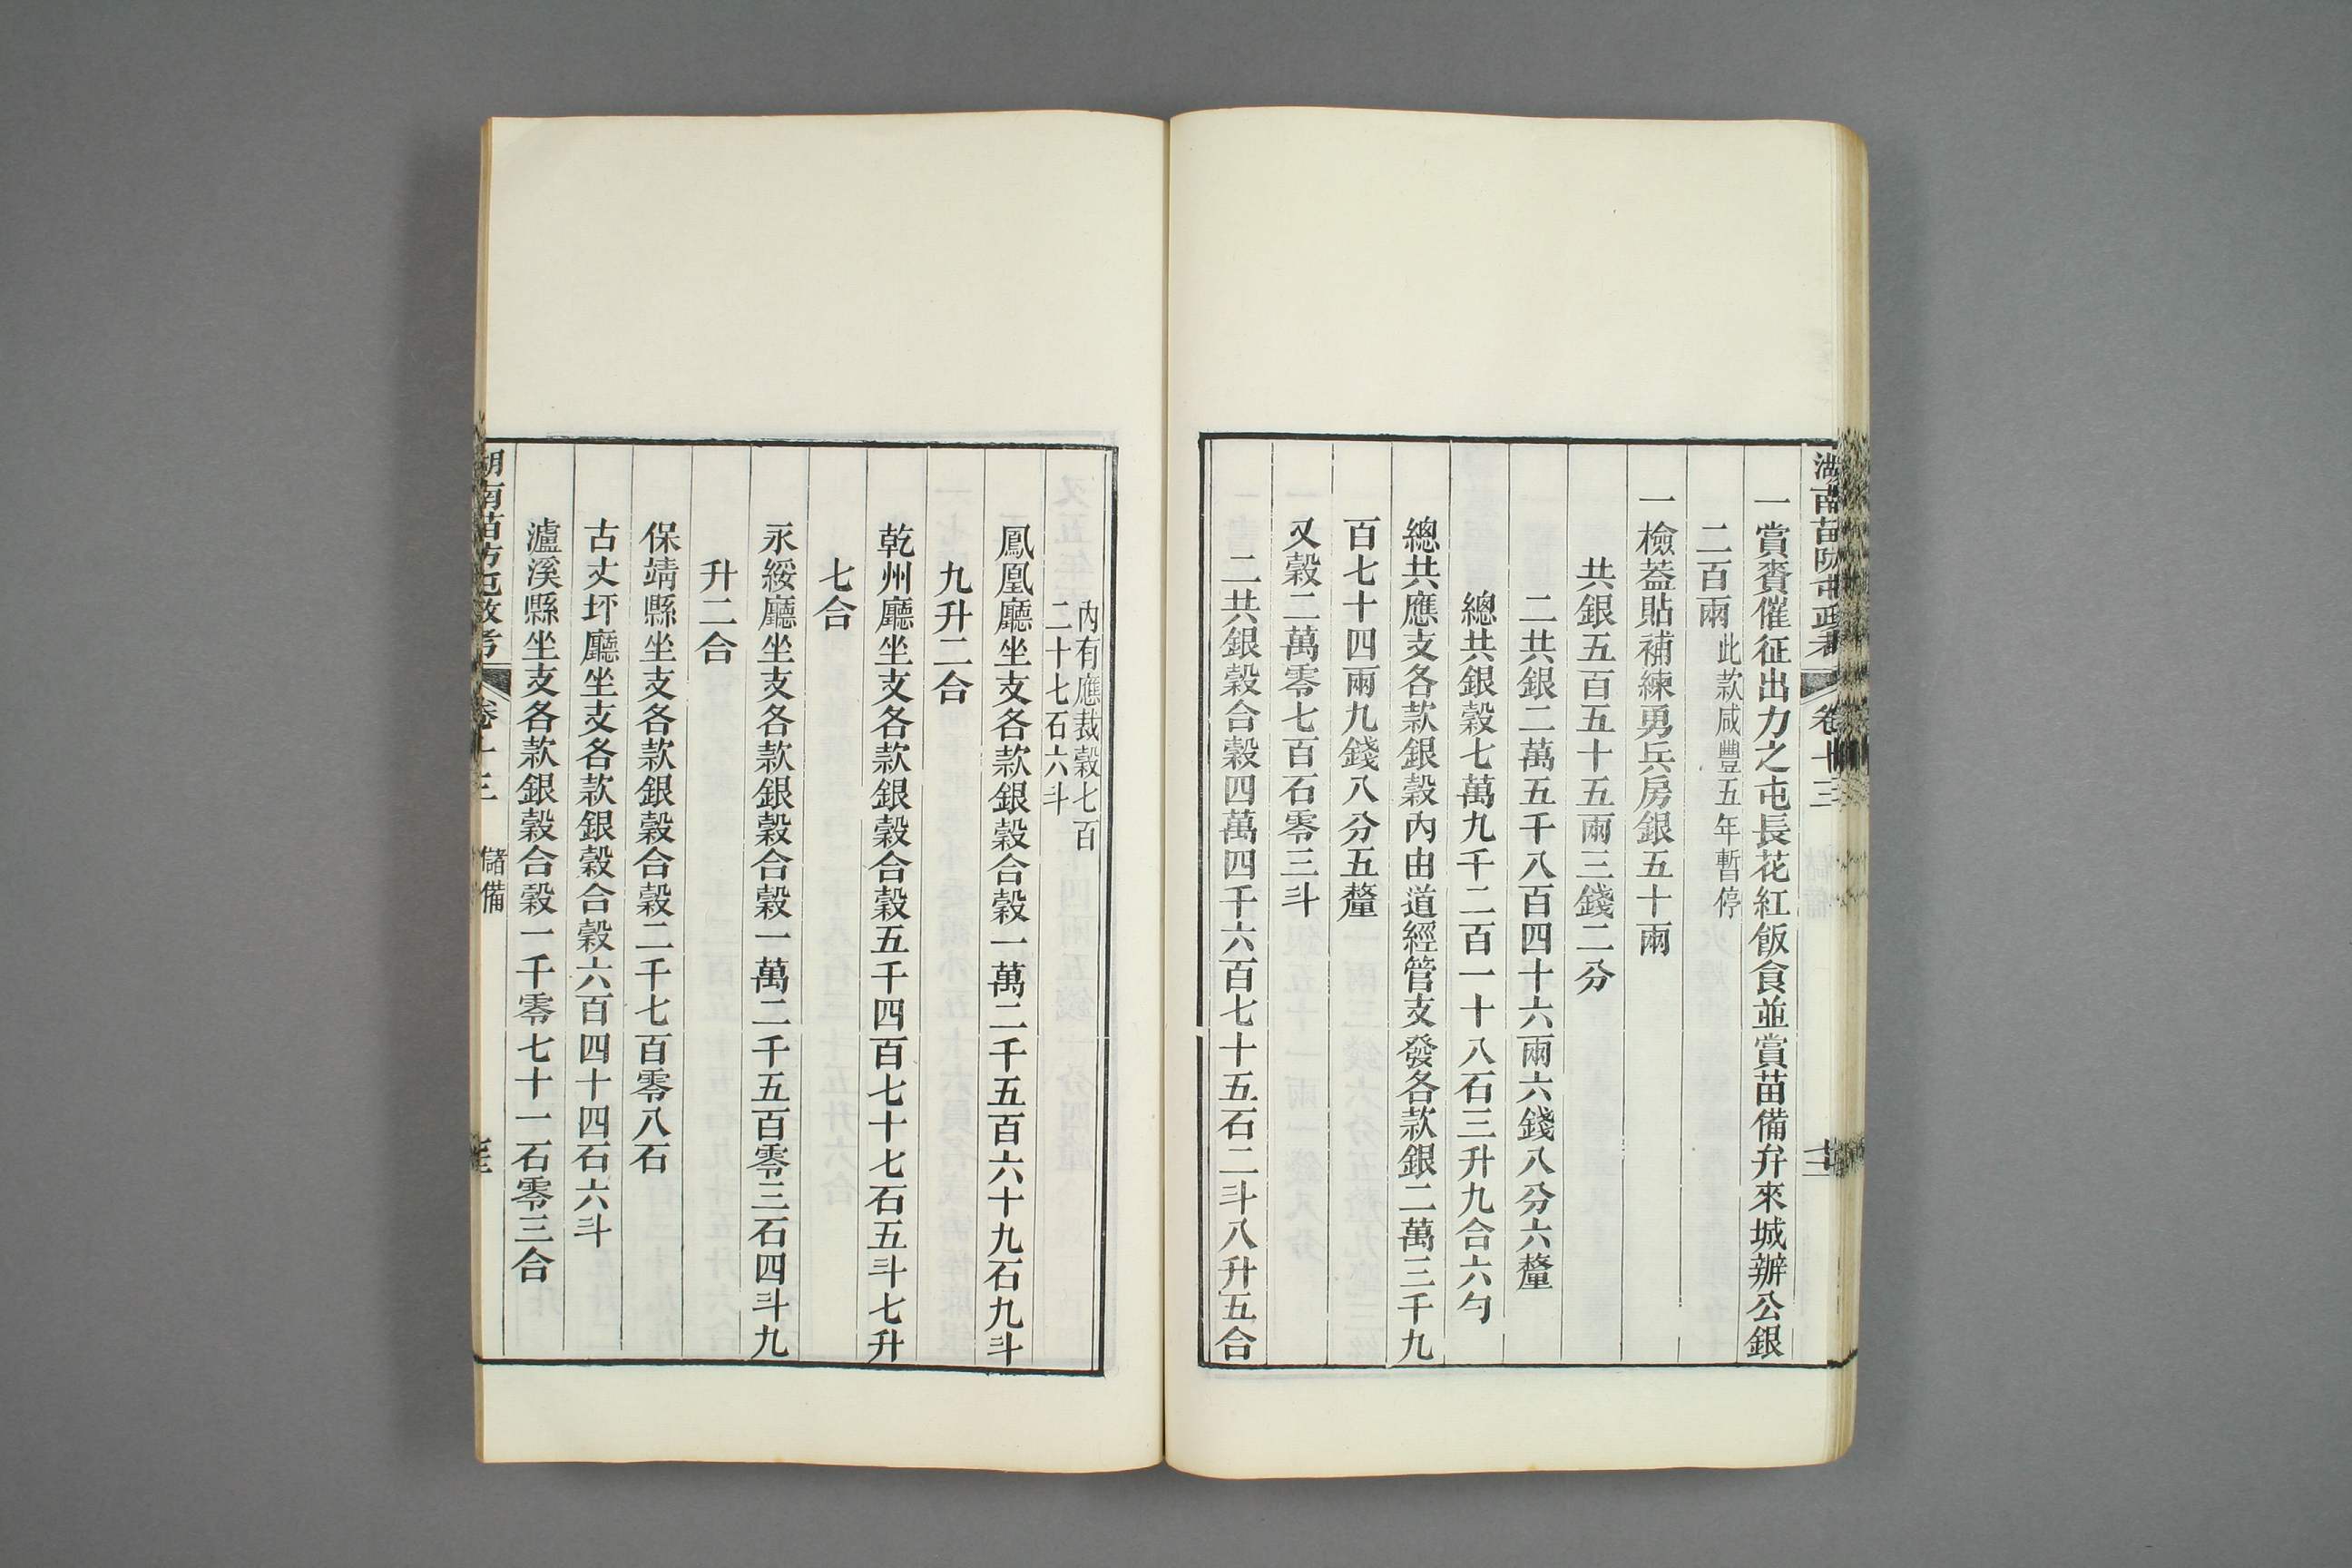 湖南苗防屯政考
卷十三
一賞賚催征出力之屯長花紅飯食並賞苗備弁來城辦公銀
二百兩此款咸豐五年暫停
一檢蓋貼補練勇兵房銀五十兩
共銀五百五十五兩三錢二分
二共銀二萬五千八百四十六兩六錢八分六釐
總共銀穀七萬九千二百一十八石三升九合六勺
總共應支各款銀穀內由道經管支發各款銀二萬三千九
百七十四兩九錢八分五釐
又穀二萬零七百石零三斗
二共銀穀合穀四萬四千六百七十五石二斗八升五合
內有應裁穀七百
二十七石六斗
鳳凰廳坐支各款銀穀合穀一萬二千五百六十九石九斗
九升二合
乾州廳坐支各款銀穀合穀五千四百七十七石五斗七升
七合
永綏廳坐支各款銀穀合穀一萬二千五百零三石四斗九
升二合
保靖縣坐支各款銀穀合穀二千七百零八石
古丈坪廳坐支各款銀穀合穀六百四十四石六斗
瀘溪縣坐支各款銀穀合穀一千零七十一石零三合
湖南苗防屯政考
卷十三
儲備